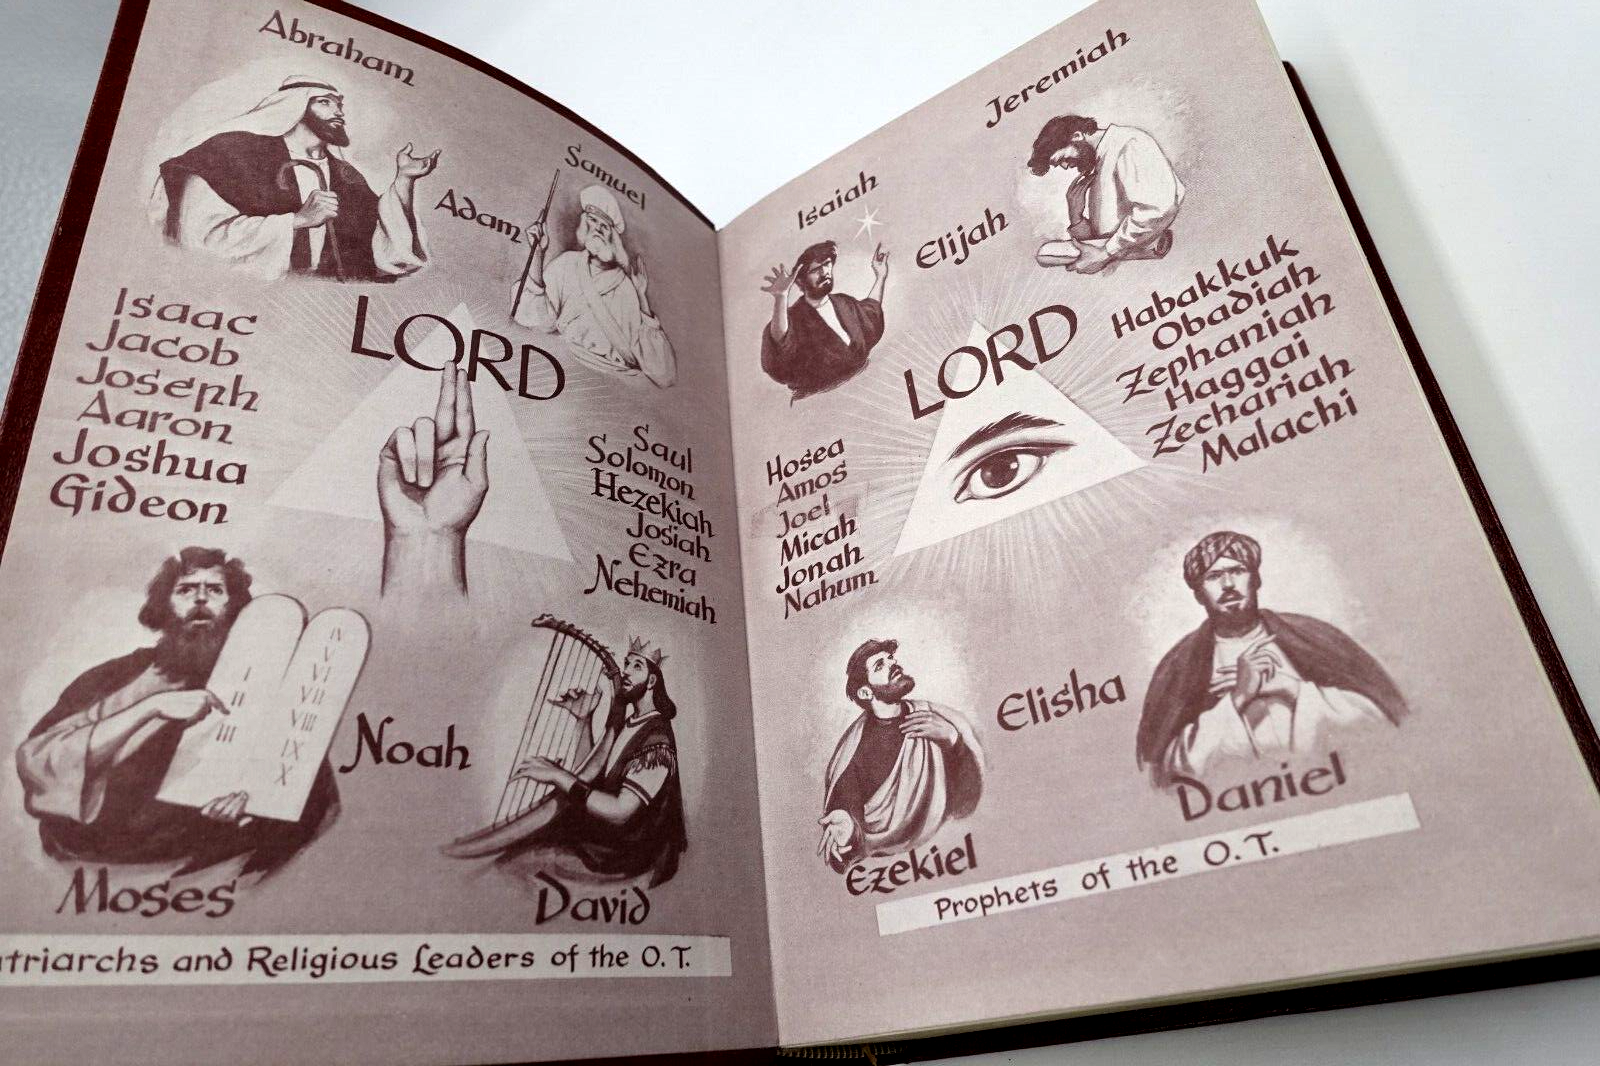 Abraham
Samuel
Adam
LORD
Isaac
Jacob
Joseph
Aaron
Joshua
Gideon
Saul
Solomon
Hezekiah
Josiah
Ezra
Nehemiah
I
II
III
IV
V
VI
VII
VIII
IX
X
Noah
Moses
David
triarchs and Religious Leaders of the O.T.
Jeremiah
Isaiah
Elijah
LORD
Habakkuk
Obadiah
Zephaniah
Haggai
Zechariah
Malachi
Hosea
Amos
Joel
Micah
Jonah
Nahum
Elisha
Daniel
Ezekiel
Prophets of the O.T.